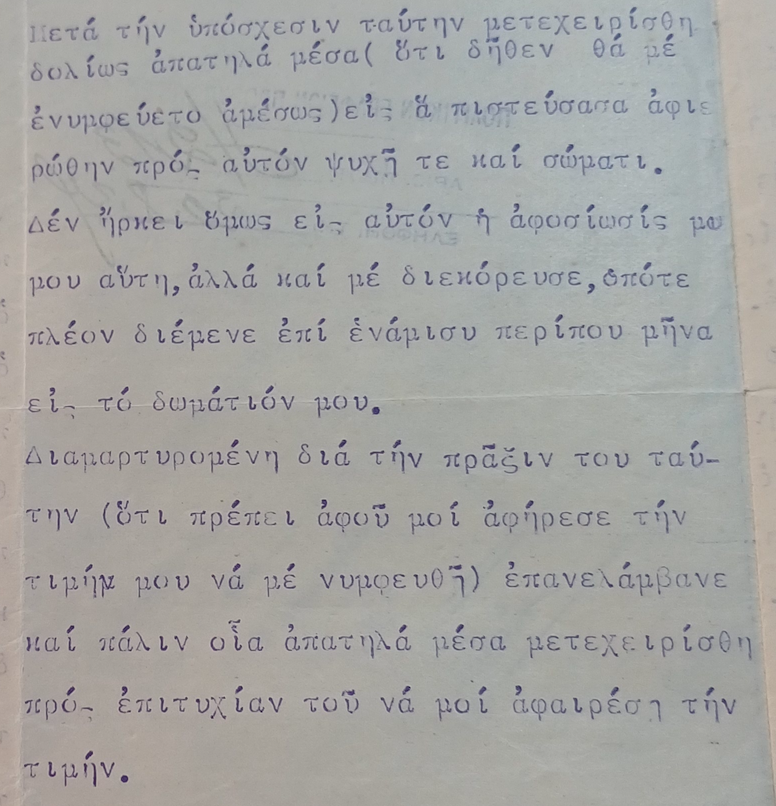 Μετά τήν ὑπόσχεσιν ταύτην μετεχειρίσθη
δολίως ἀπατηλά μέσα( ὅτι δῆθεν θά μέ
ἐνυμφεύετο ἀμέσως)εἰς ἅ πιστεύσασα ἀφιε
ρώθην πρός αὐτόν ψυχῇ τε καί σώματι.
Δέν ἤρκει ὅμως εἰς αὐτόν ἡ ἀφοσίωσίς μου
μου αὕτη,ἀλλά καί μέ διεκόρευσε,ὁπότε
πλέον διέμενε ἐπί ἑνάμισυ περίπου μῆνα
εἰς τό δωμάτιόν μου.
Διαμαρτυρομένη διά τήν πρᾶξιν του ταύ-
την (ὅτι πρέπει ἀφοῦ μοί ἀφήρεσε τήν
τιμήν μου νά μέ νυμφευθῇ) ἐπανελάμβανε
καί πάλιν οἷα ἀπατηλά μέσα μετεχειρίσθη
πρός ἐπιτυχίαν τοῦ νά μοί ἀφαιρέσῃ τήν
τιμήν.